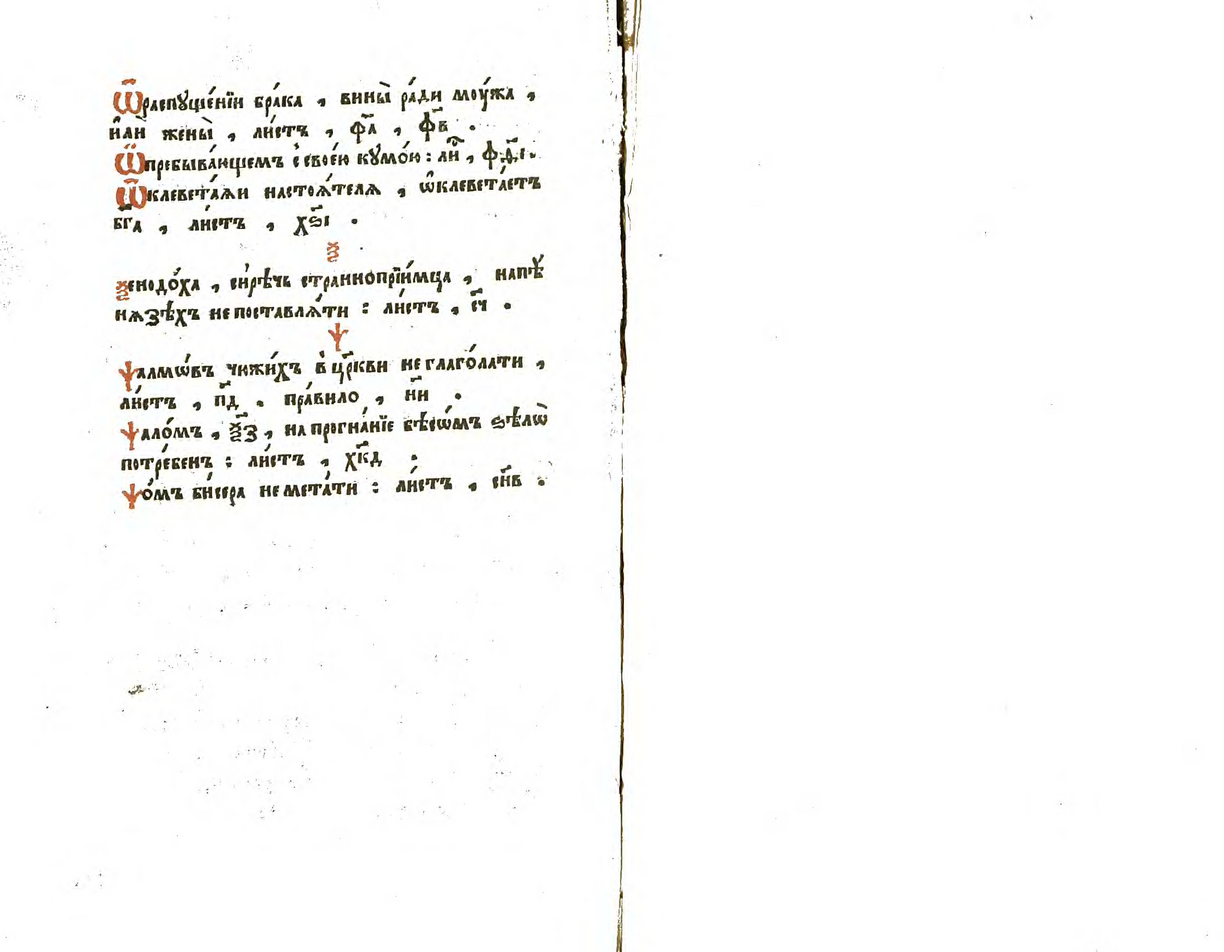 Ѽраспꙋще́нїи бра́ка , вины̀ ра́ди моу́жа ,
и҆лѝ жены̀ , ли́стъ , фл҃а , фл҃в .
Ѽпребыва́ющемъ с своє́ю кꙋмо́ю : ли̑ , ф҃д҃і .
Ѽклевета́ѧи настоѧ́телѧ , ѡ҆клевета́етъ
бг҃а , ли́стъ , хѕ҃і .
ѯ
ѯенодо́ха , си́рѣчь страннопрїи́мца , напѣ
нѧзѣ́хъ не поставлѧ́ти : ли́стъ , с҃ч .
ѱ
ѱалмѡ́въ чюжи́хъ в цр҃кви не глаго́лати ,
ли́стъ , п҃д . пра́вило , н҃и .
ѱало́мъ , ѯ҃з , на прогна́нїе бѣсѡ́мъ ѕѣлѡ̀
потре́бенъ : ли́стъ , хк҃д .
ѱо́мъ би́сера не мета́ти : ли́стъ , сн҃в .